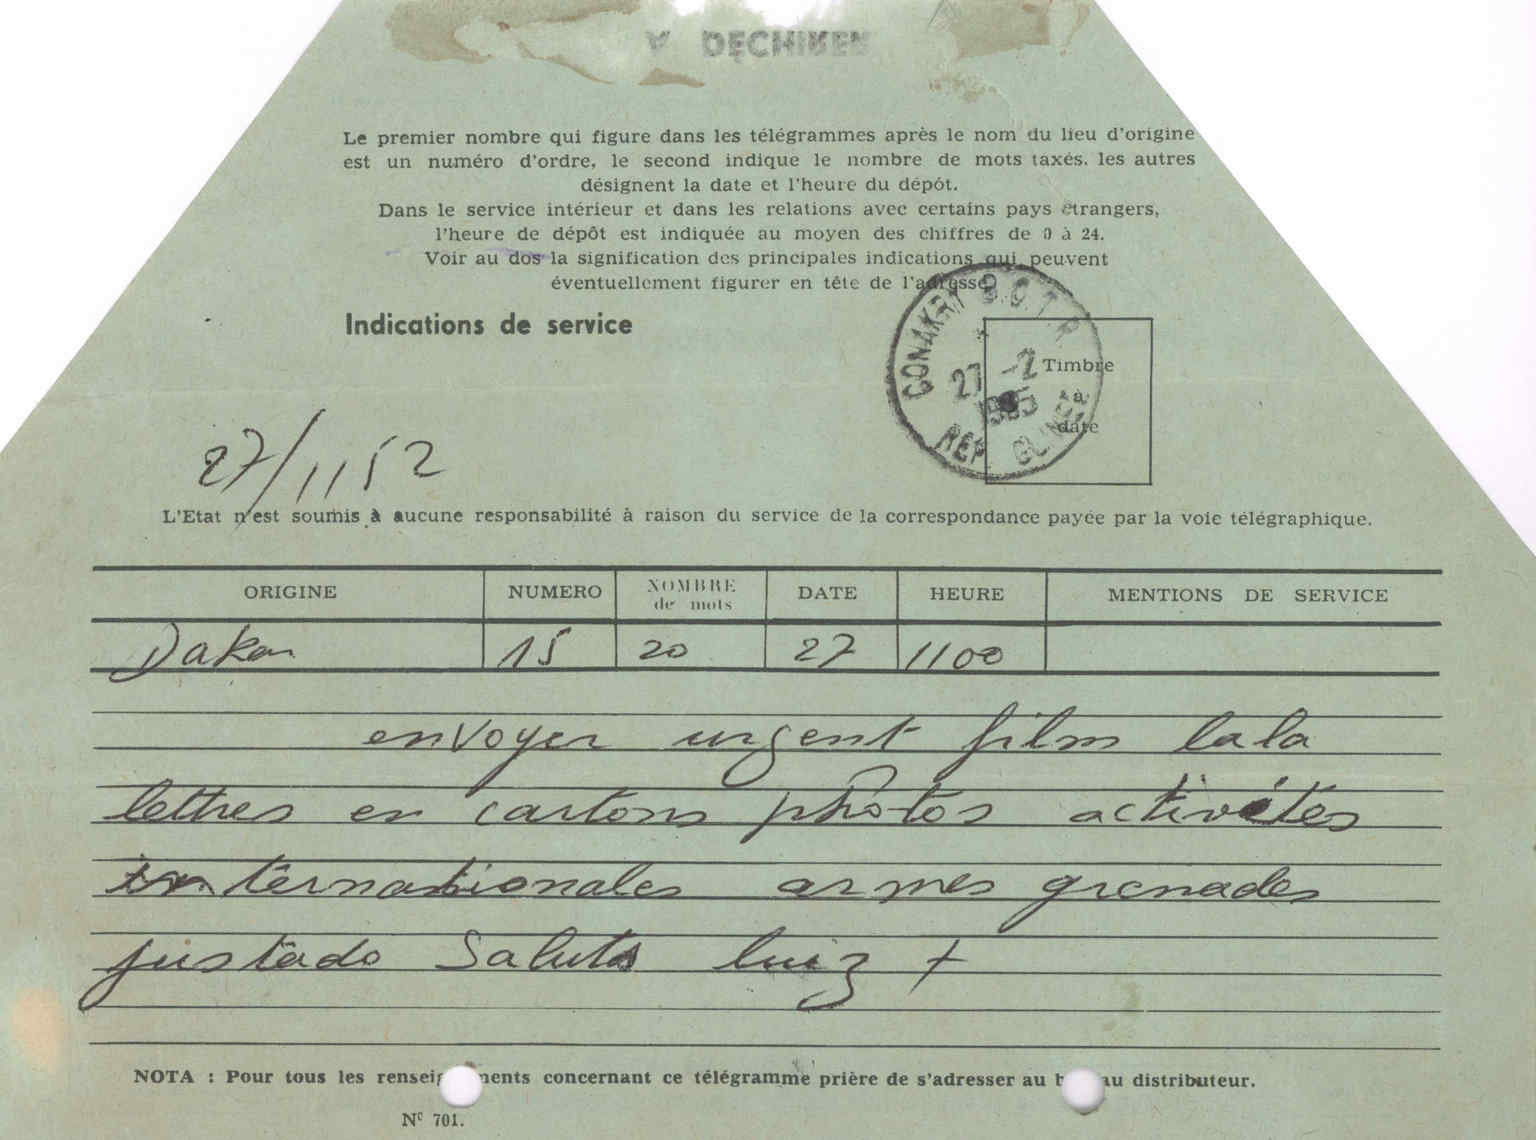 A DECHIRER
Le premier nombre qui figure dans les télégrammes après le nom du lieu d'origine
est un numéro d'ordre, le second indique le nombre de mots taxés. les autres
désignent la date et l'heure du dépôt.
Dans le service intérieur et dans les relations avec certains pays étrangers,
l'heure de dépôt est indiquée au moyen des chiffres de 0 à 24.
Voir au dos la signification des principales indications qui peuvent
éventuellement figurer en tête de l'adresse
Indications de service
CONAKRY B.C.T.R
27 -2
REP GUINEE
Timbre
à
date
27/1152
L'Etat n'est soumis à aucune responsabilité à raison du service de la correspondance payée par la voie télégraphique.
ORIGINE NUMERO NOMBRE de mots DATE HEURE MENTIONS DE SERVICE
Dakar 15 20 27 1100
envoyer urgent film lala
lettres en cartons photos activités
internationales armes grenades
justado Saluts luiz +
NOTA : Pour tous les renseig ents concernant ce télégramme prière de s'adresser au b au distributeur.
Nº 701.